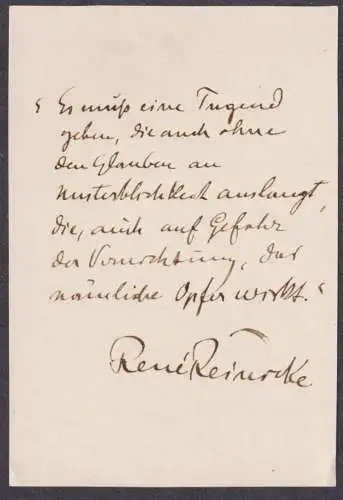 „Es muß eine Tugend
geben, die auch ohne
den Glauben an
Unsterblichkeit auslangt,
die, auch auf Gefahr
der Vernichtung, das
nämliche Opfer wirkt.“
René Reinicke